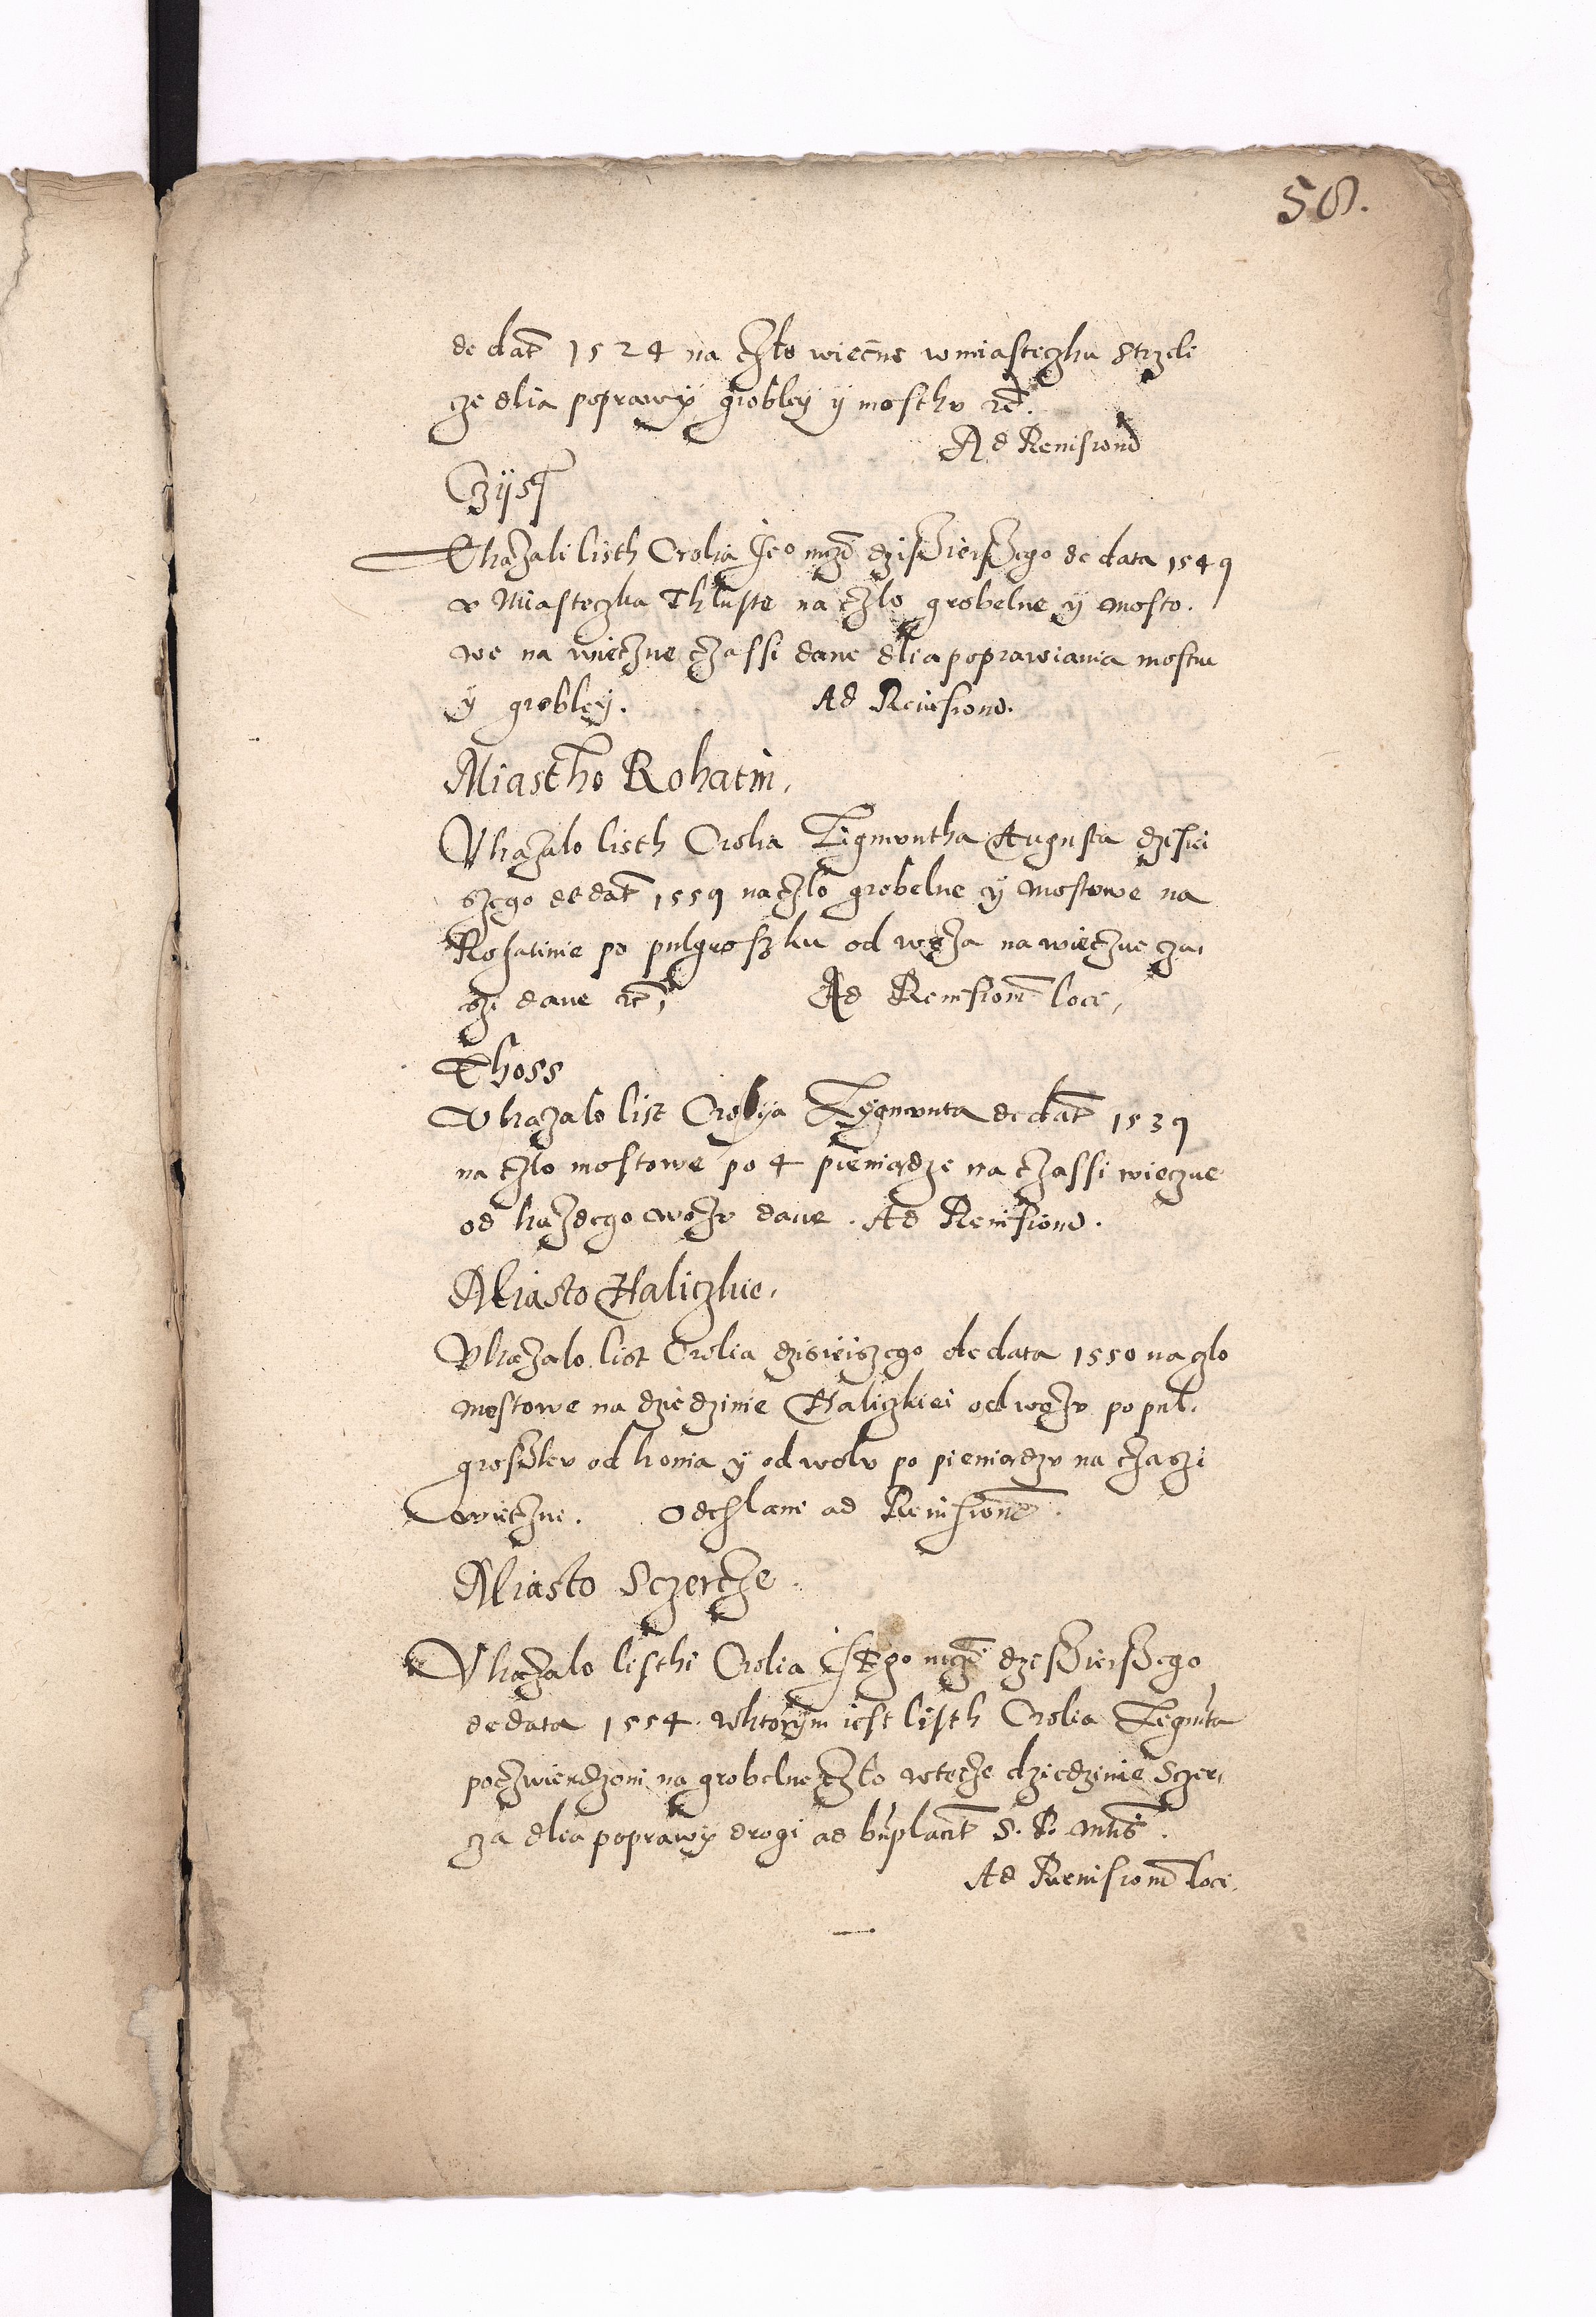 58.
de dat 1524 na czlo wiecne w miasteczku Strzeli
cze dlia poprawy grobley y mosthv etc.
Ad Revisione
Czijsz
Vkazali listh Crolia Jeo mczi dzisszierszego de data 1549
v Miasteczka Thluste na czlo grobelne y mosto.
we na wieczne czassi dane dlia poprawiania mostu
y grobley. Ad Revisione.
Miastho Rohatin,
Vkazalo listh Crolia Zigmvntha Augusta dzisiei
szego de dat 1559 na czlo grobelne y mostowe na
Rohatinie po pulgroszku od woza na wieczne cza,
szi dane etc, Ad Revisione loci,
Thoss
Vkazalo list Crolya Zygmvnta de dat 1539
na czlo mostowe po 4 pieniadze na czassi wieczne
od kazdego wozv dane. Ad Revisione.
Miasto Haliczkie,
Vkazalo list Crolia dzisieiszego de data 1550 na czlo
mostowe na dziedzinie Haliczkiei od wozv po pul,
groszkv od konia y od wolv po pieniadzv na czaszi
wieczne. Odeslani ad Revisione.
Miasto Sczercze.
Vkazalo listhi Crolia Jego mczi dzesszierszego
de data 1554. wktorym iest listh Crolia Zigmta
poczwierdzoni na grobelne czlo w tecze dziedzinie Sczer,
cza dlia poprawy drogi ad bnplacit S. R. Mtis.
Ad Revisione loci,